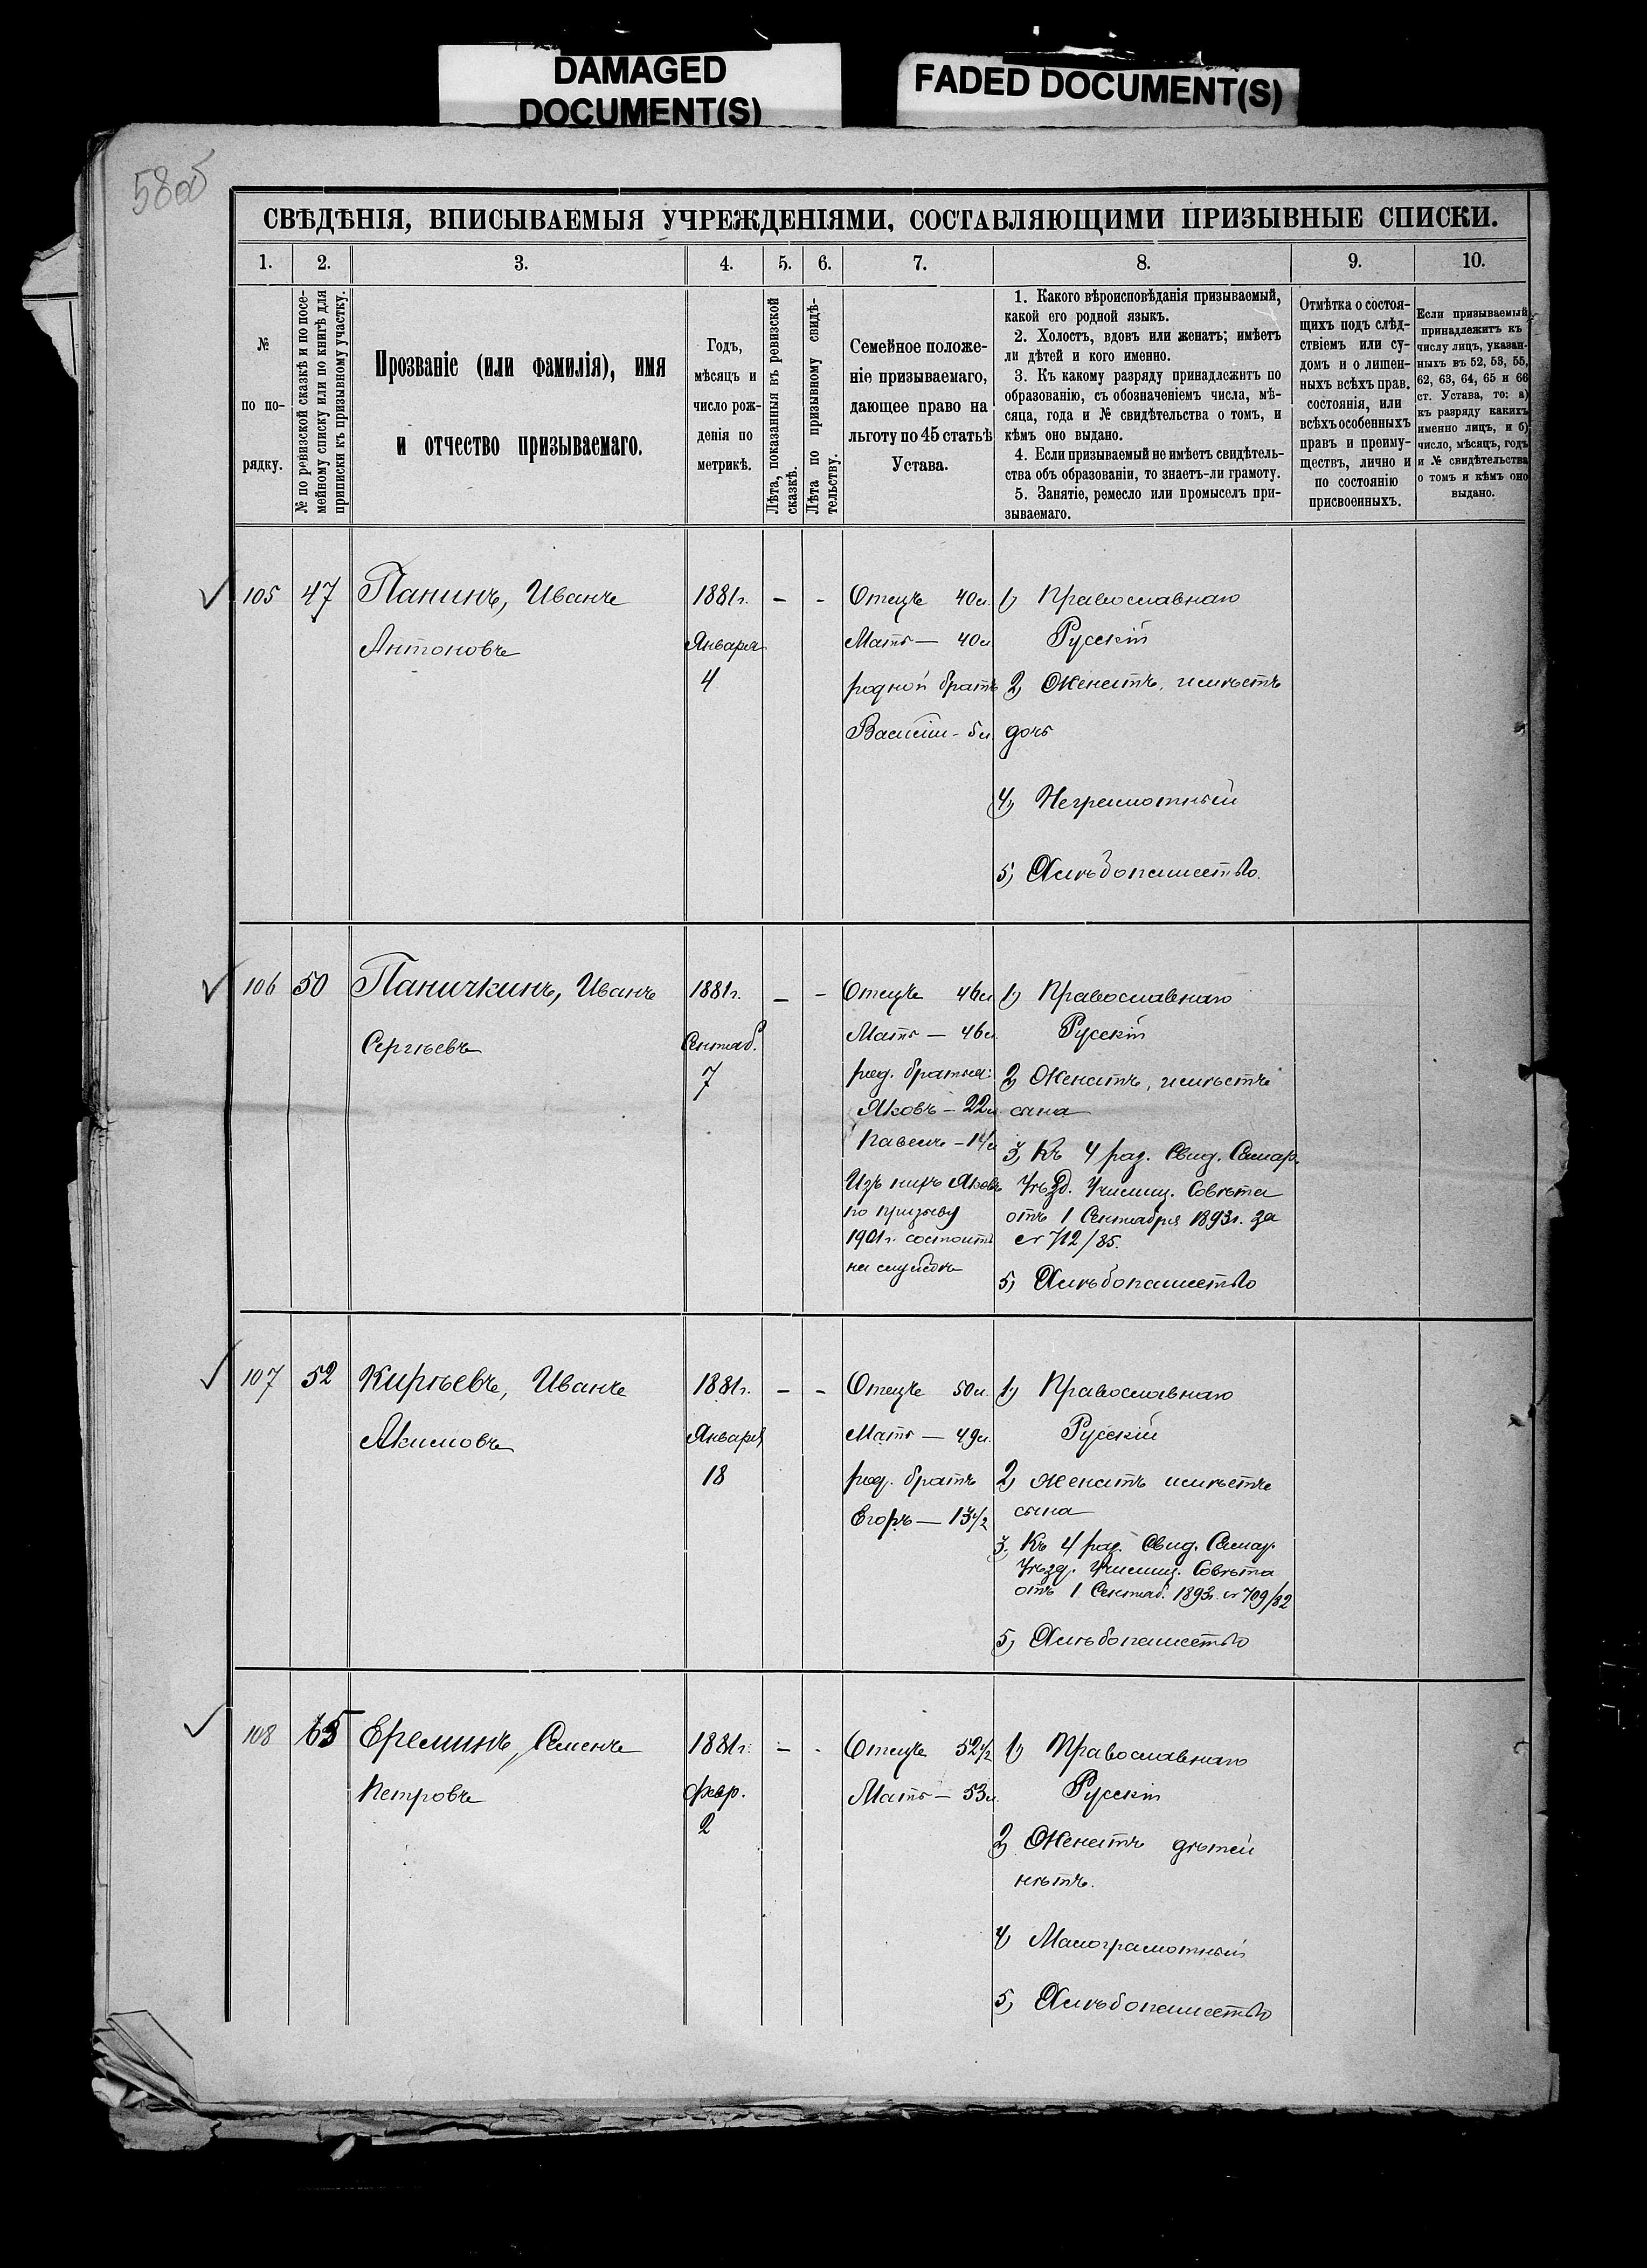 DAMAGED
DOCUMENT(S)
FADED DOCUMENT(S)
58об
СВѢДѢНІЯ, ВПИСЫВАЕМЫЯ УЧРЕЖДЕНІЯМИ, СОСТАВЛЯЮЩИМИ ПРИЗЫВНЫЕ СПИСКИ.
1. 2. 3. 4. 5. 6. 7. 8. 9. 10.
№
по по-
рядку.
№ по ревизской сказкѣ и по посе-
мейному списку или по книгѣ для
приписки къ призывному участку.
Прозваніе (или фамилія), имя
и отчество призываемаго.
Годъ,
мѣсяцъ и
число рож-
денія по
метрикѣ.
Лѣта, показанныя въ ревизской
сказкѣ.
Лѣта по призывному свидѣ-
тельству.
Семейное положе-
ніе призываемаго,
дающее право на
льготу по 45 статьѣ
Устава.
1. Какого вѣроисповѣданія призываемый,
какой его родной языкъ.
2. Холостъ, вдовъ или женатъ; имѣетъ
ли дѣтей и кого именно.
3. Къ какому разряду принадлежитъ по
образованію, съ обозначеніемъ числа, мѣ-
сяца, года и № свидѣтельства о томъ, и
кѣмъ оно выдано.
4. Если призываемый не имѣетъ свидѣтель-
ства объ образованіи, то знаетъ-ли грамоту.
5. Занятіе, ремесло или промыселъ при-
зываемаго.
Отмѣтка о состоя-
щихъ подъ слѣд-
ствіемъ или су-
домъ и о лишен-
ныхъ всѣхъ прав.
состоянія, или
всѣхъ особенныхъ
правъ и преиму-
ществъ, лично и
по состоянію
присвоенныхъ.
Если призываемый
принадлежитъ къ
числу лицъ, указан-
ныхъ въ 52, 53, 55,
62, 63, 64, 65 и 66
ст. Устава, то: а)
къ разряду какихъ
именно лицъ, и б)
число, мѣсяцъ, годъ
и № свидѣтельства
о томъ и кѣмъ оно
выдано.
105 47 Панинъ, Иванъ
Антоновъ
1881г.
Января
4
- -
Отецъ 40л.
Мать — 40л
родной братъ
Василій - 5л
1) Православнаго
Русскій
2) Женатъ, имѣетъ
дочь
4) Неграмотный
5) Хлѣбопашество.
106 50 Паничкинъ, Иванъ
Сергѣевъ
1881г.
Сентяб.
7
- -
Отецъ 46л
Мать — 46л.
род. братья:
Яковъ — 22л
Павелъ — 14л
Изъ нихъ Яковъ
по призыву
1901г. состоитъ
на службѣ
1) Православнаго
Русскій
2) Женатъ, имѣетъ
сына
3) Къ 4 раз. Свид. Самар.
Уѣзд. Училищ. Совѣта
отъ 1 Сентября 1893г. за
№ 712/85.
5) Хлѣбопашество
107 52 Кирѣевъ, Иванъ
Акимовъ
1881г.
Января
18
- -
Отецъ 50л.
Мать — 49л.
род. братъ
Егоръ — 13½
1) Православнаго
Русскій
2) Женатъ имѣетъ
сына
3. Къ 4 раз. Свид. Самар.
Уѣзд. Училищ. Совѣта
отъ 1 Сентяб. 1893г. № 709/82
5) Хлѣбопашество
108 65 Ереминъ, Семенъ
Петровъ
1881г.
Февр.
2
- -
Отецъ 52½
Мать — 53л.
1) Православнаго
Русскій
2) Женатъ дѣтей
нѣтъ.
4) Малограмотный
5) Хлѣбопашество